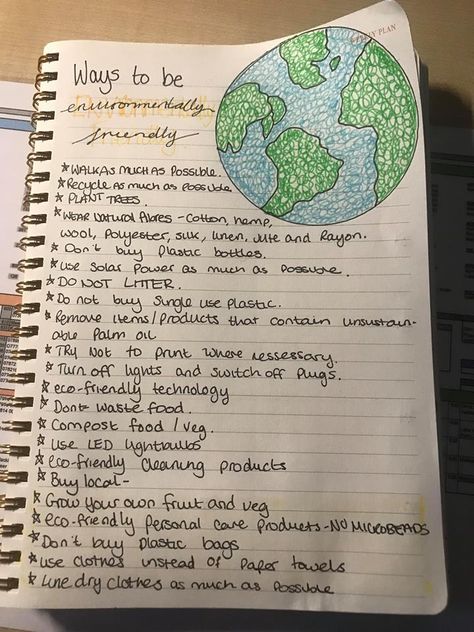 Ways to be
environmentally
friendly
* WALK AS MUCH AS POSSIBLE.
* Recycle as much as possible
* PLANT TREES.
* Wear Natural fibres - Cotton, hemp,
wool, Polyester, silk, linen, Jute and Rayon.
* Don't buy Plastic bottles.
* Use Solar Power as much as Possible.
* DO NOT LITTER.
* Do not buy Single use plastic.
* Remove items/products that contain unsustain-
able Palm oil
* TRY Not to print where nessessary.
* Turn off lights and switch off Plugs.
* eco-friendly technology
* Dont waste food.
* Compost food/veg.
* Use LED lightbulbs
* eco-friendly cleaning products
* Buy local-
* Grow your own fruit and veg
* eco-friendly Personal care Products - NO MICROBEADS
* Don't buy Plastic bags
* use clothes instead of Paper towels
* Line dry clothes as much as Possible